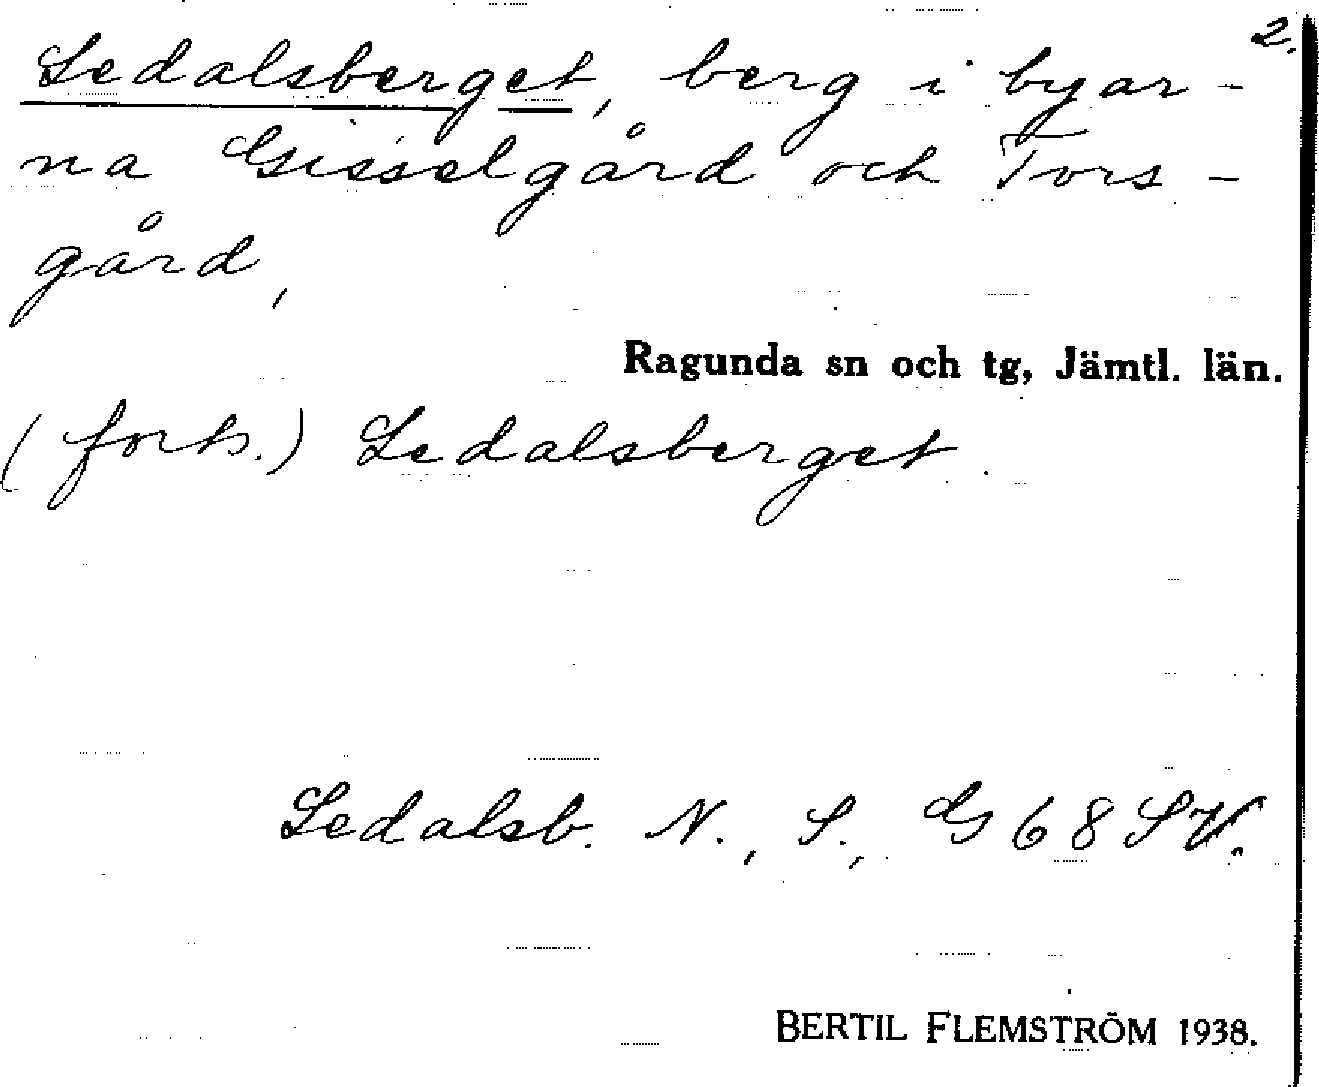 2.
Ledalsberget, berg i byar-
na Gisselgård och Tors-
gård,
Ragunda sn och tg, Jämtl. län.
(forts.) Ledalsberget.
Ledalsb. N., S., G 68 SV.
BERTIL FLEMSTRÖM 1938.